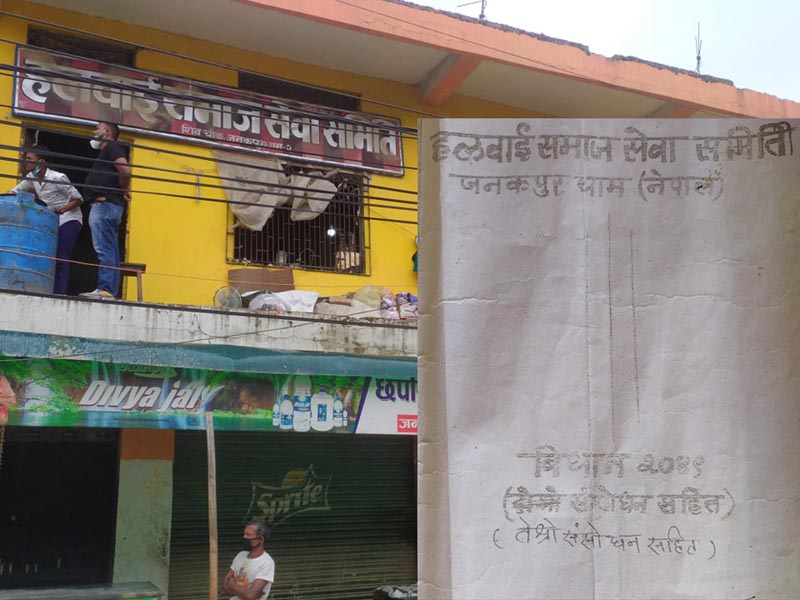 हलवाई समाज सेवा समिति
शिव चौक जनकपुरधाम-२
Divya jal
Sprite
हलवाई समाज सेवा समिति
जनकपुर धाम (नेपाल)
बिधान २०४९
संशोधन सहित)
(तेश्रो संसोधन सहित)